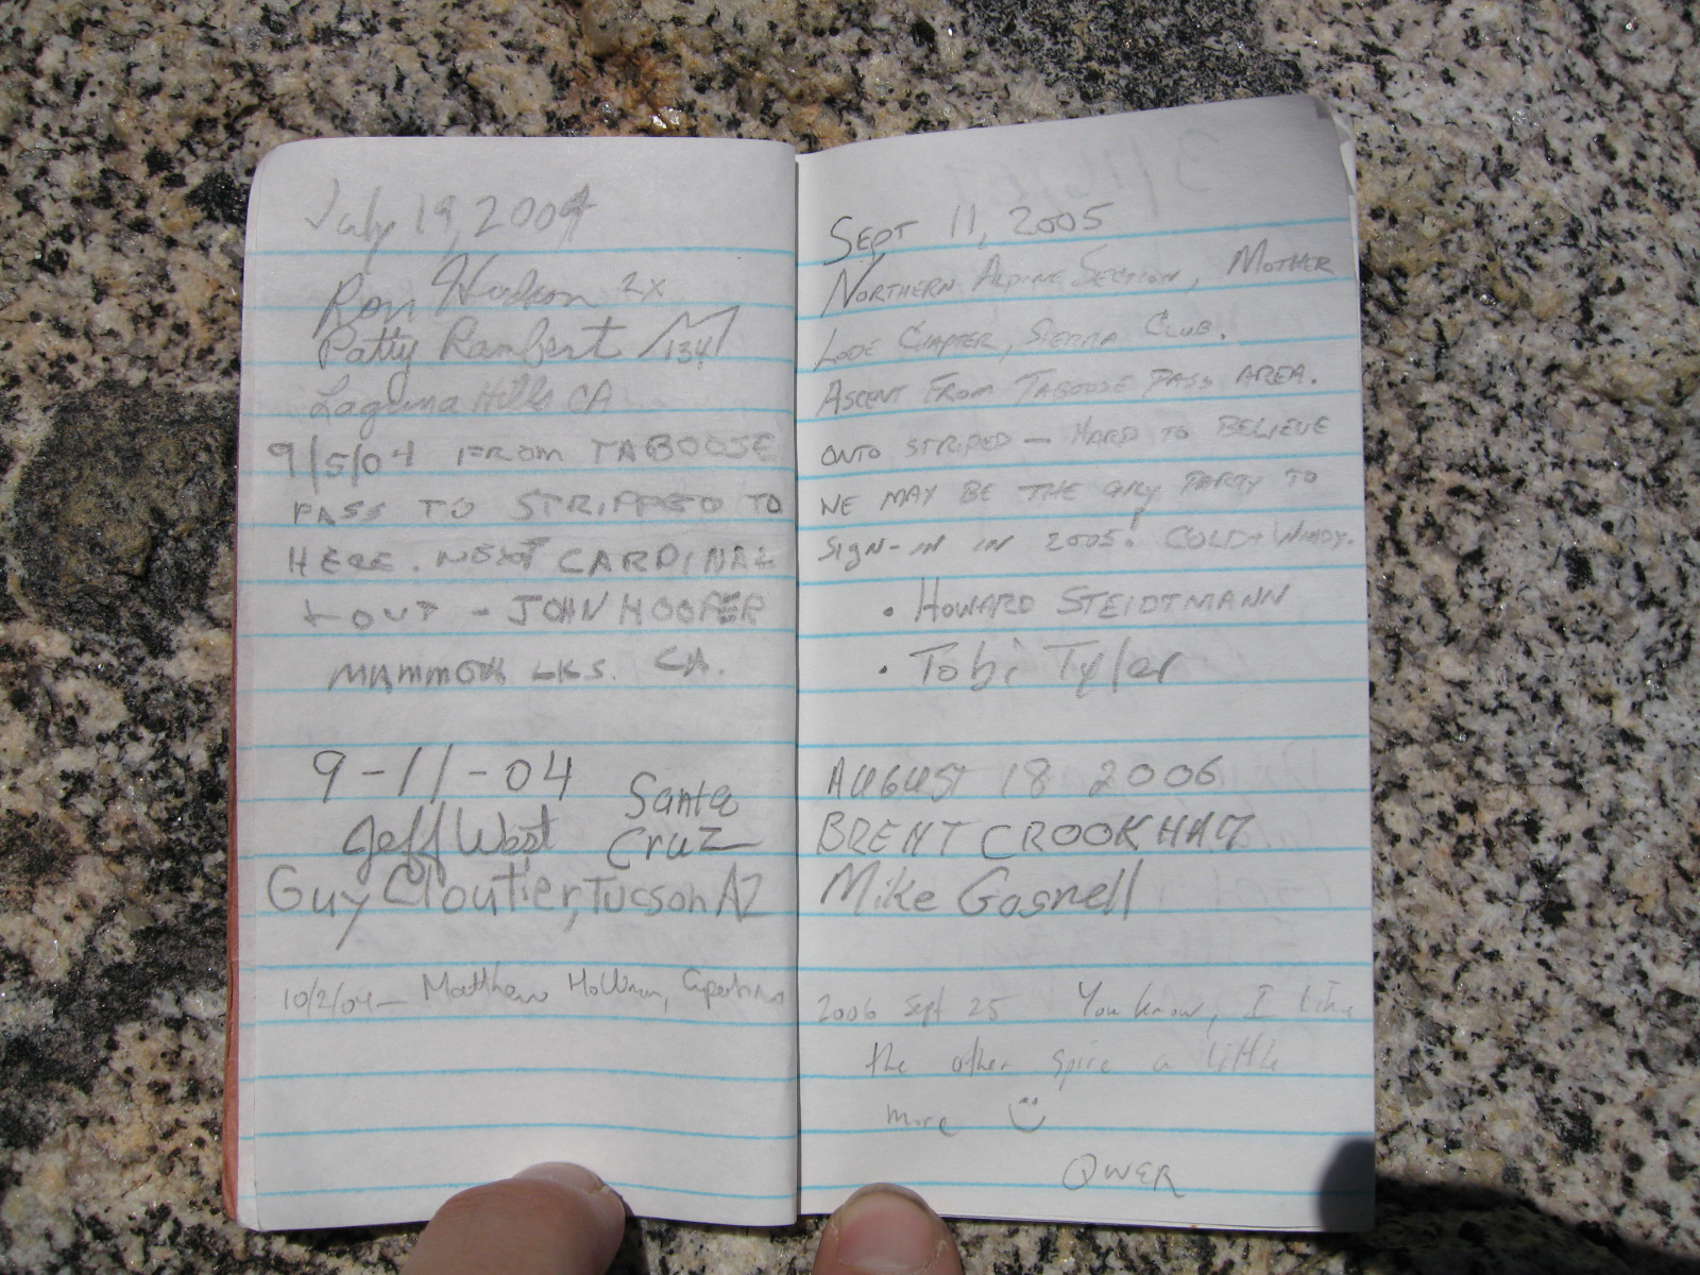 July 19, 2004
Ron Hudson 2x
Patty Rambert 134
Laguna Hills CA
9/5/04 FROM TABOOSE
PASS TO STRIPPED TO
HERE. NEXT CARDINAL
+ OUT - JOHN HOOPER
MAMMOTH LKS. CA.
9-11-04
Santa
Jeff West Cruz
Guy Cloutier, Tucson AZ
10/2/04 - Matthew Holliman, Cupertino
SEPT 11, 2005
NORTHERN ALPINE SECTION, MOTHER
LODE CHAPTER, SIERRA CLUB.
ASCENT FROM TABOOSE PASS AREA.
ONTO STRIPED - HARD TO BELIEVE
WE MAY BE THE ONLY PARTY TO
SIGN-IN IN 2005! COLD + WINDY.
• HOWARD STEIDTMANN
• Tobi Tyler
AUGUST 18 2006
BRENT CROOKHAM
Mike Gosnell
2006 Sept 25 You know, I like
the other spire a little
more
QWER